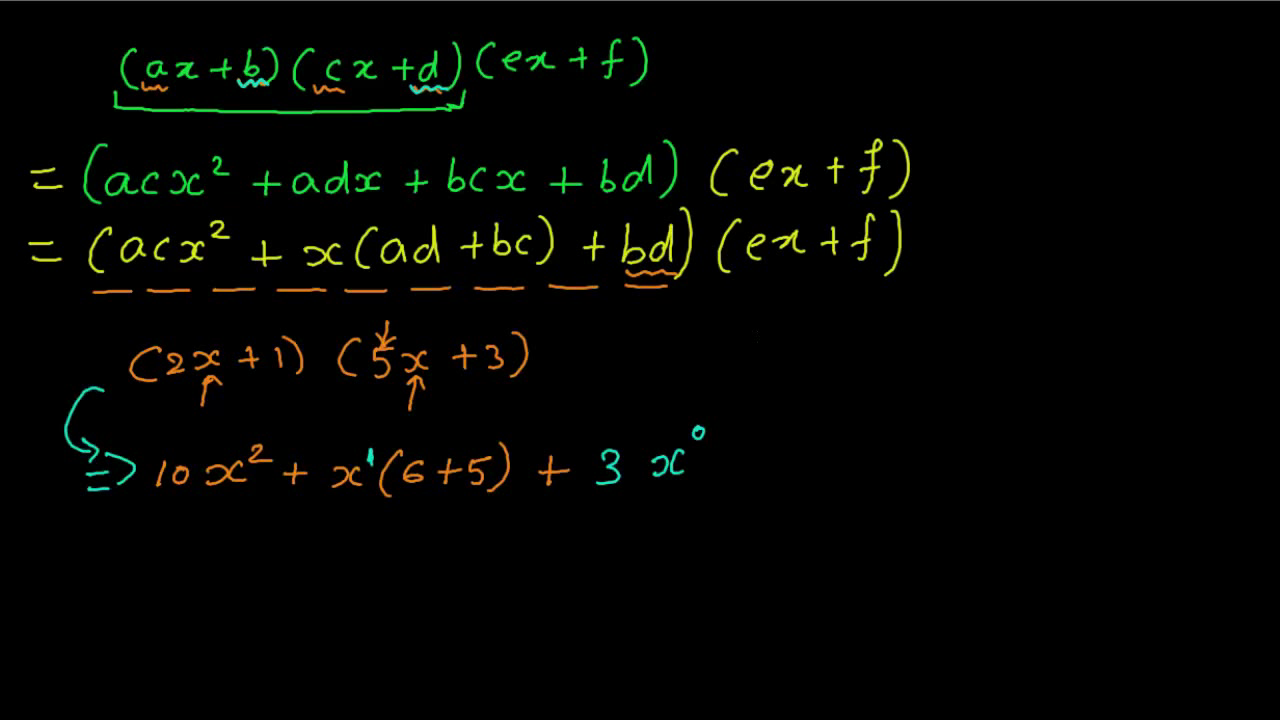 (ax + b) (cx + d) (ex + f)
= (acx² + adx + bcx + bd) (ex + f)
= (acx² + x(ad + bc) + bd) (ex + f)
(2x + 1) (5x + 3)
⇒ 10x² + x¹(6+5) + 3x⁰